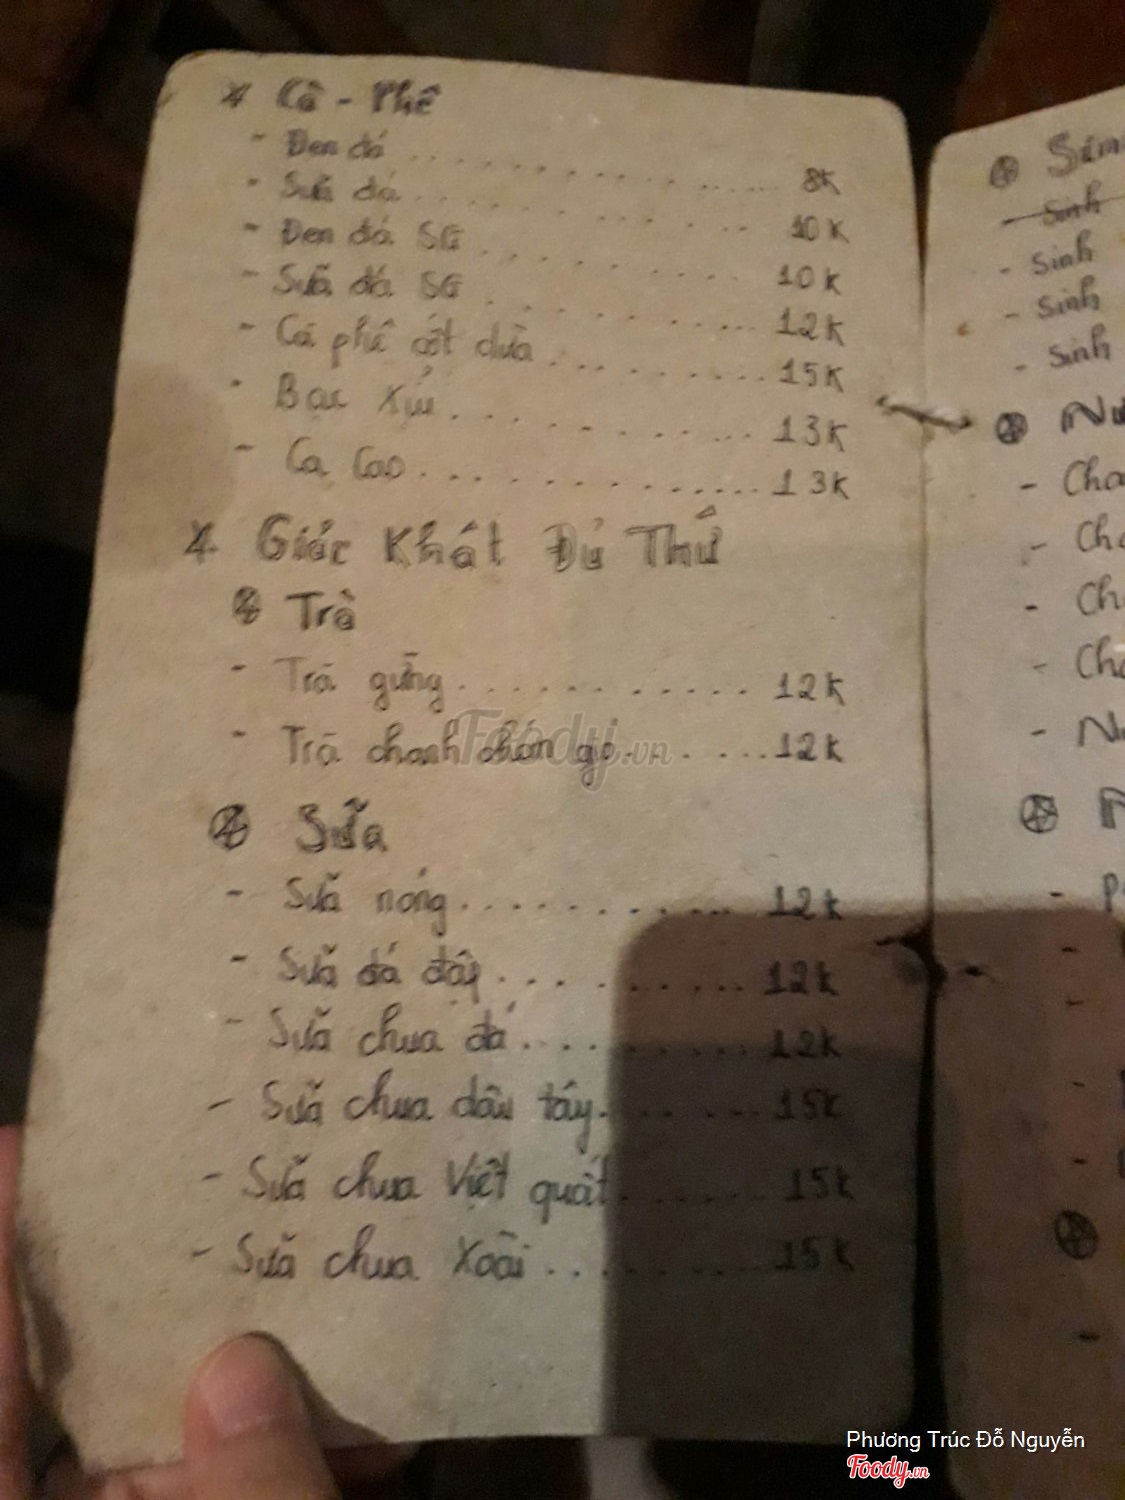 * Cà - Phê
- Đen đá ........ 8K
- Sữa đá ........ 10K
- Đen đá SG ........ 10K
- Sữa đá SG ........ 12K
- Cà phê cốt dừa ........ 15K
- Bạc Xỉu ........ 13K
- Ca Cao ........ 13K
* Giải Khát Đủ Thứ
Trà
- Trà gừng ........ 12K
- Trà chanh chém gió ........ 12K
Sữa
- Sữa nóng ........ 12K
- Sữa đá đây ........ 12K
- Sữa chua đá ........ 12K
- Sữa chua dâu tây ........ 15K
- Sữa chua Việt quất ........ 15K
- Sữa chua Xoài ........ 15K
- Sinh
- Sinh
- Sinh
- Sinh
Foody.vn
Phương Trúc Đỗ Nguyễn
Foody.vn